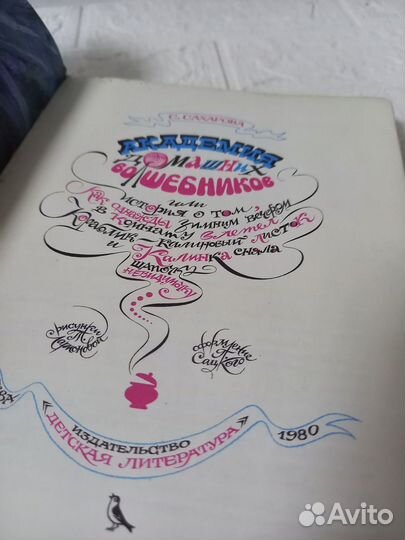 С. САХАРОВА
АКАДЕМИЯ
ДОМАШНИХ
ВОЛШЕБНИКОВ
или
история о том,
как однажды зимним вечером
в комнату влетел
кораблик - калиновый листок
и Калинка сняла
шапочку
невидимку
рисунки
Т.
оформление
Сацкого
ВА
ИЗДАТЕЛЬСТВО
"ДЕТСКАЯ ЛИТЕРАТУРА"
1980
Avito